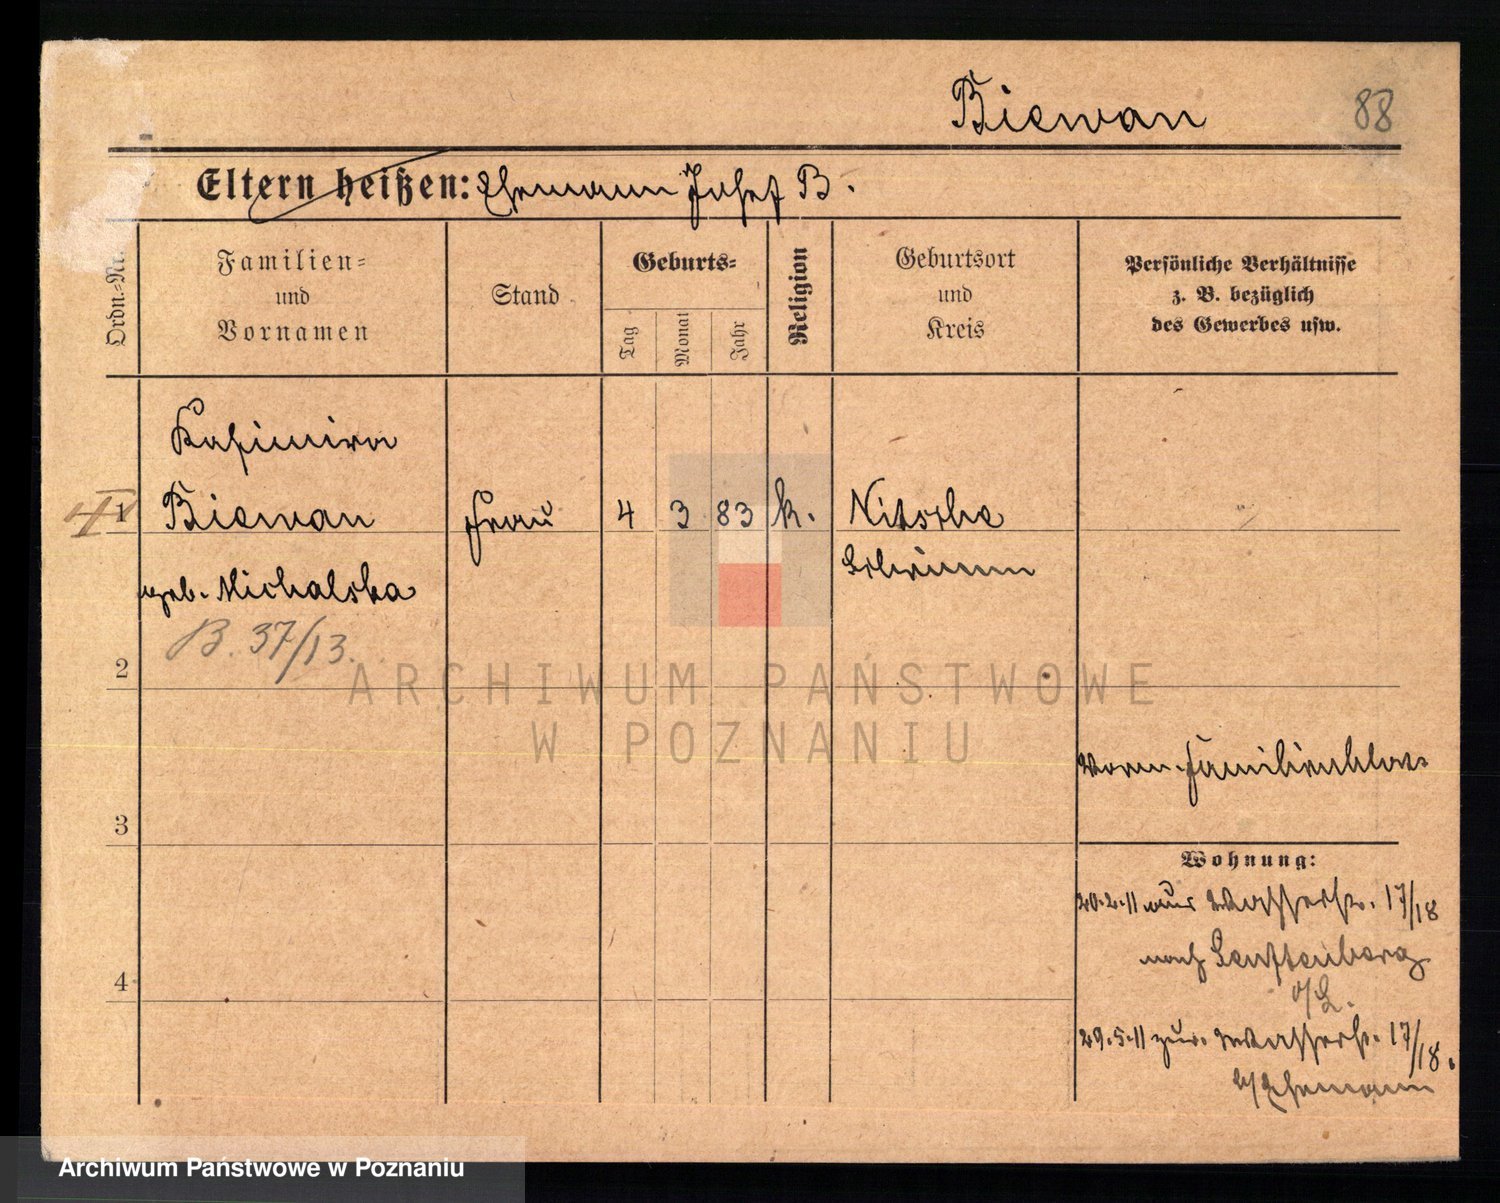 Biewan 88
Eltern heißen: Ehemann Josef B.
Ordn.-Nr.
Familien- und Vornamen
Stand
Geburts-
Tag
Monat
Jahr
Religion
Geburtsort und Kreis
Persönliche Verhältnisse
z. B. bezüglich
des Gewerbes usw.
Kasimira
1 Biewan Frau 4 3 83 k. Nitsche
Schrimm
geb. Michalska
B. 37/13.
2
ARCHIWUM PAŃSTWOWE
W POZNANIU
Familienblatt
3
Wohnung:
20.2.11 aus Wasserstr. 17/18
nach Senftenberg
4
o/L.
29.5.11 zur. Wasserstr. 17/18.
b/Ehemann
Archiwum Państwowe w Poznaniu